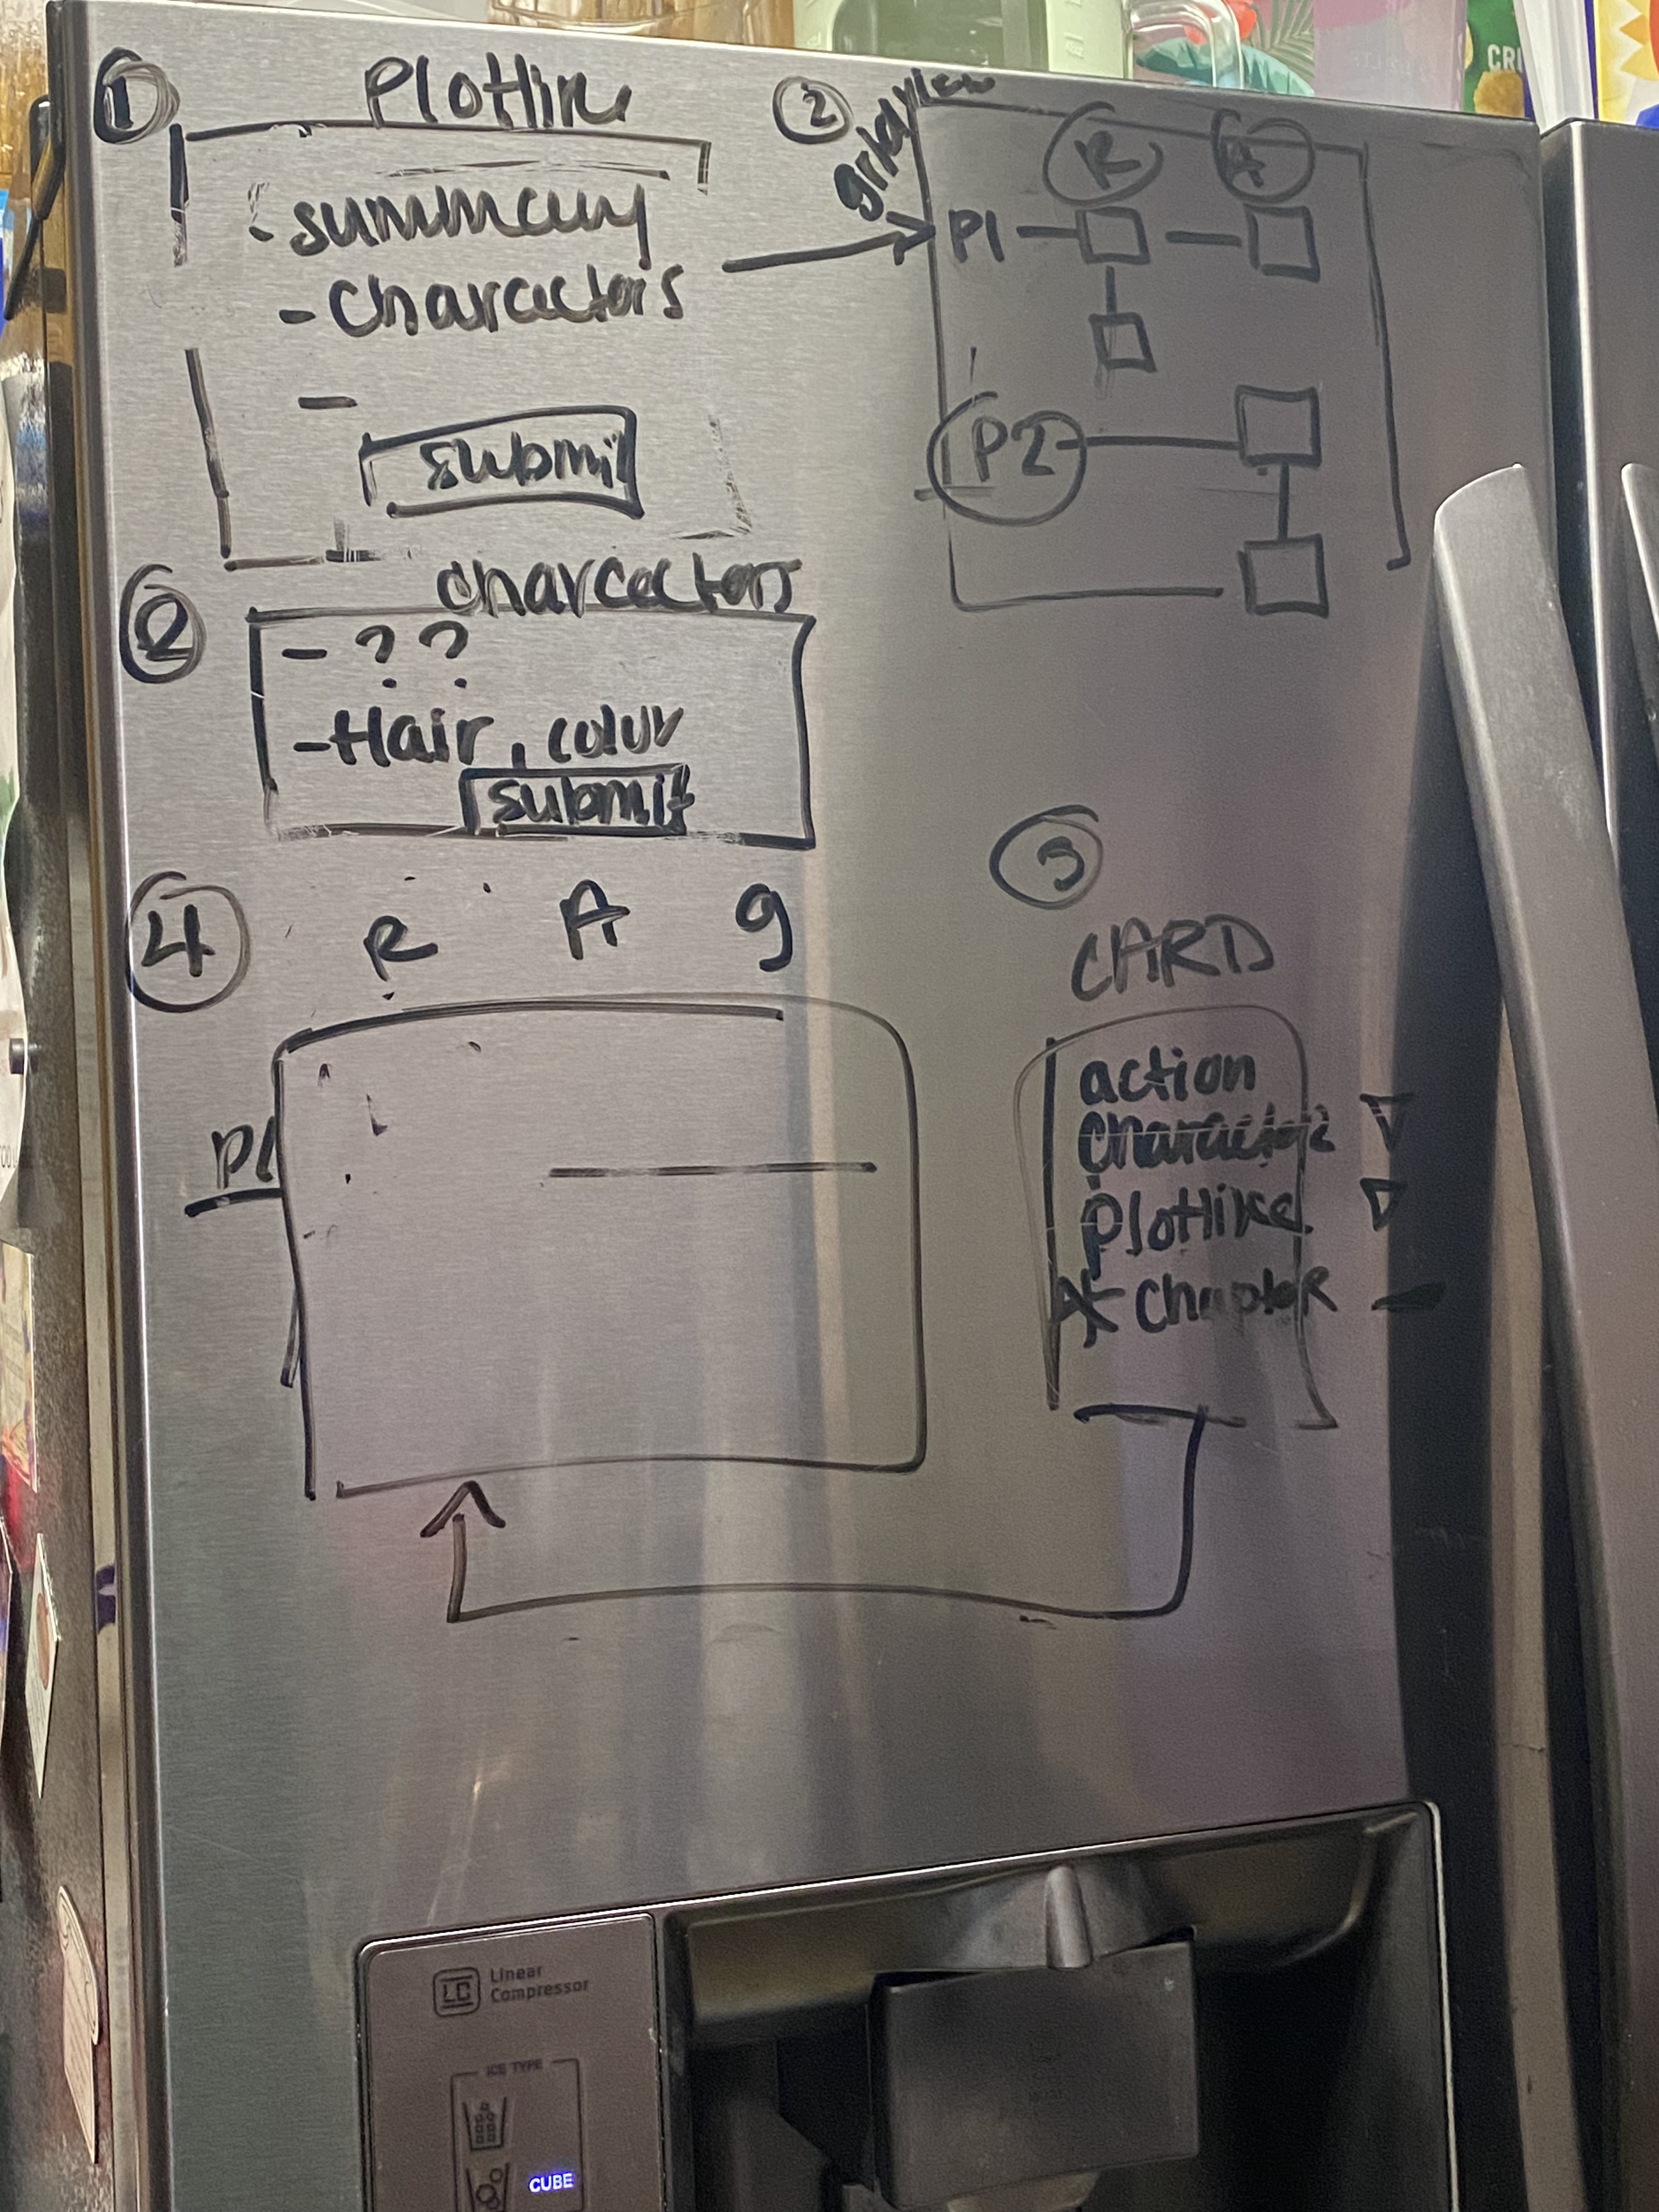 1 Plotline
- summary
- Characters
-
submit
2 gridview
R A
P1
P2
2 characters
- ??
- Hair, color
submit
4 R A g
P1
3
CARD
action
character ▽
plotline ▽
* chapter -
LC Linear
Compressor
ICE TYPE
CUBE
CRI